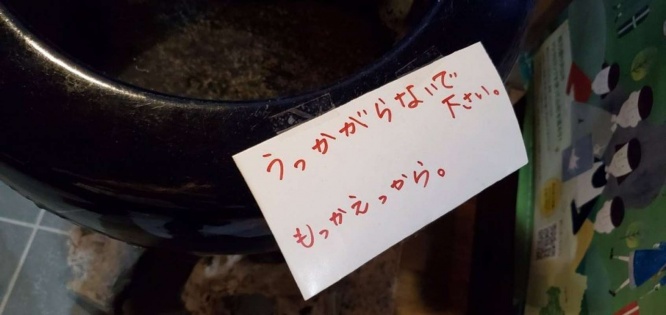 うっかがらないで
下さい。
もっかえっから。